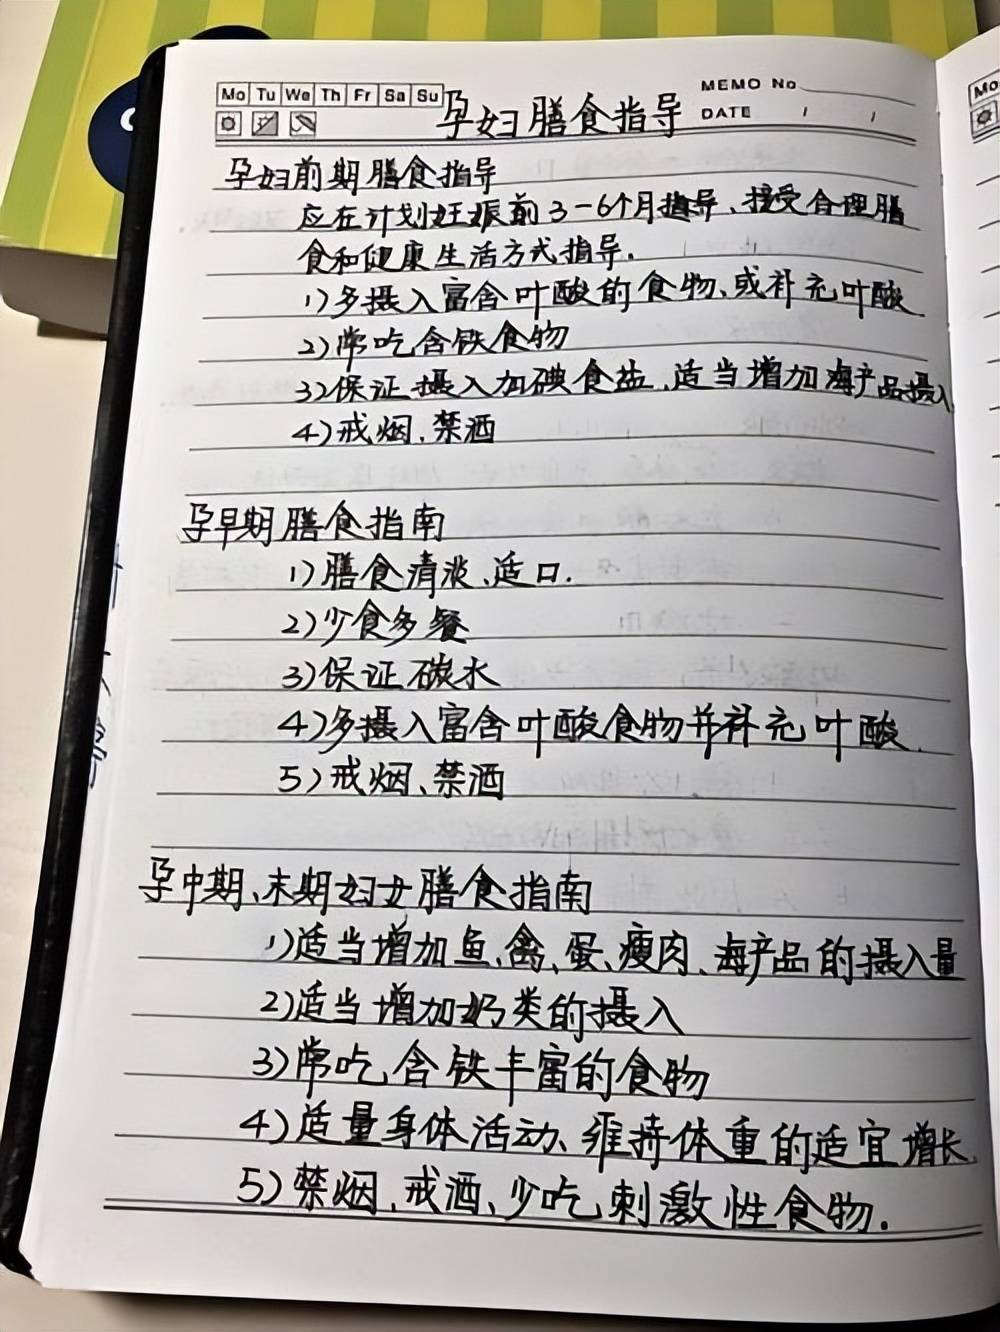 Mo Tu We Th Fr Sa Su
MEMO No
DATE / /
孕妇膳食指导
孕妇前期膳食指导
应在计划妊娠前3-6个月指导、接受合理膳
食和健康生活方式指导.
1)多摄入富含叶酸的食物、或补充叶酸
2)常吃含铁食物
3)保证摄入加碘食盐,适当增加海产品摄入
4)戒烟、禁酒
孕早期膳食指南
1)膳食清淡、适口.
2)少食多餐
3)保证碳水
4)多摄入富含叶酸食物并补充叶酸.
5)戒烟、禁酒
孕中期、末期妇女膳食指南
1)适当增加鱼、禽、蛋、瘦肉、海产品的摄入量
2)适当增加奶类的摄入
3)常吃含铁丰富的食物
4)适量身体活动、维持体重的适宜增长.
5)禁烟、戒酒、少吃刺激性食物.
Mo